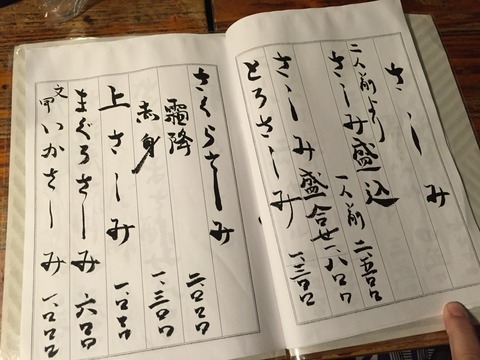 さしみ
二人前より
さしみ盛込 一人前 二、五〇〇
さしみ盛合せ 一、八〇〇
とろさしみ 一、三〇〇
さくらさしみ
霜降 二、〇〇〇
赤身 一、三〇〇
上さしみ
まぐろさしみ 六〇〇
文甲いかさしみ 一、〇〇〇